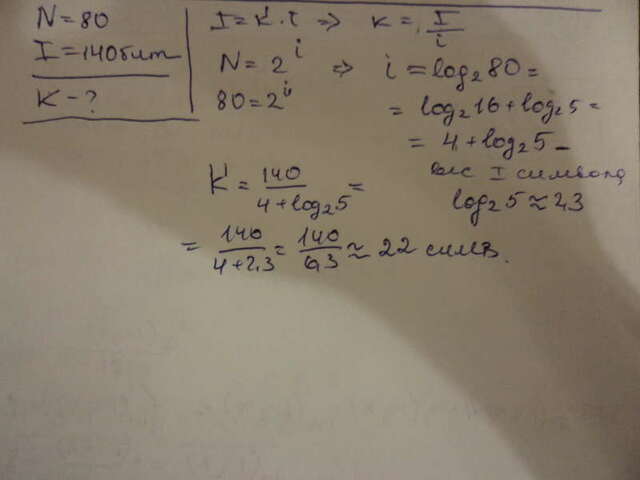 N = 80
I = 140 бит
K - ?
I = K · i => K = I/i
N = 2^i => i = log₂80 =
80 = 2^i
= log₂16 + log₂5 =
= 4 + log₂5 -
вес I символа
log₂5 ≈ 2,3
K = 140/(4 + log₂5) =
= 140/(4 + 2,3) = 140/6,3 ≈ 22 симв.